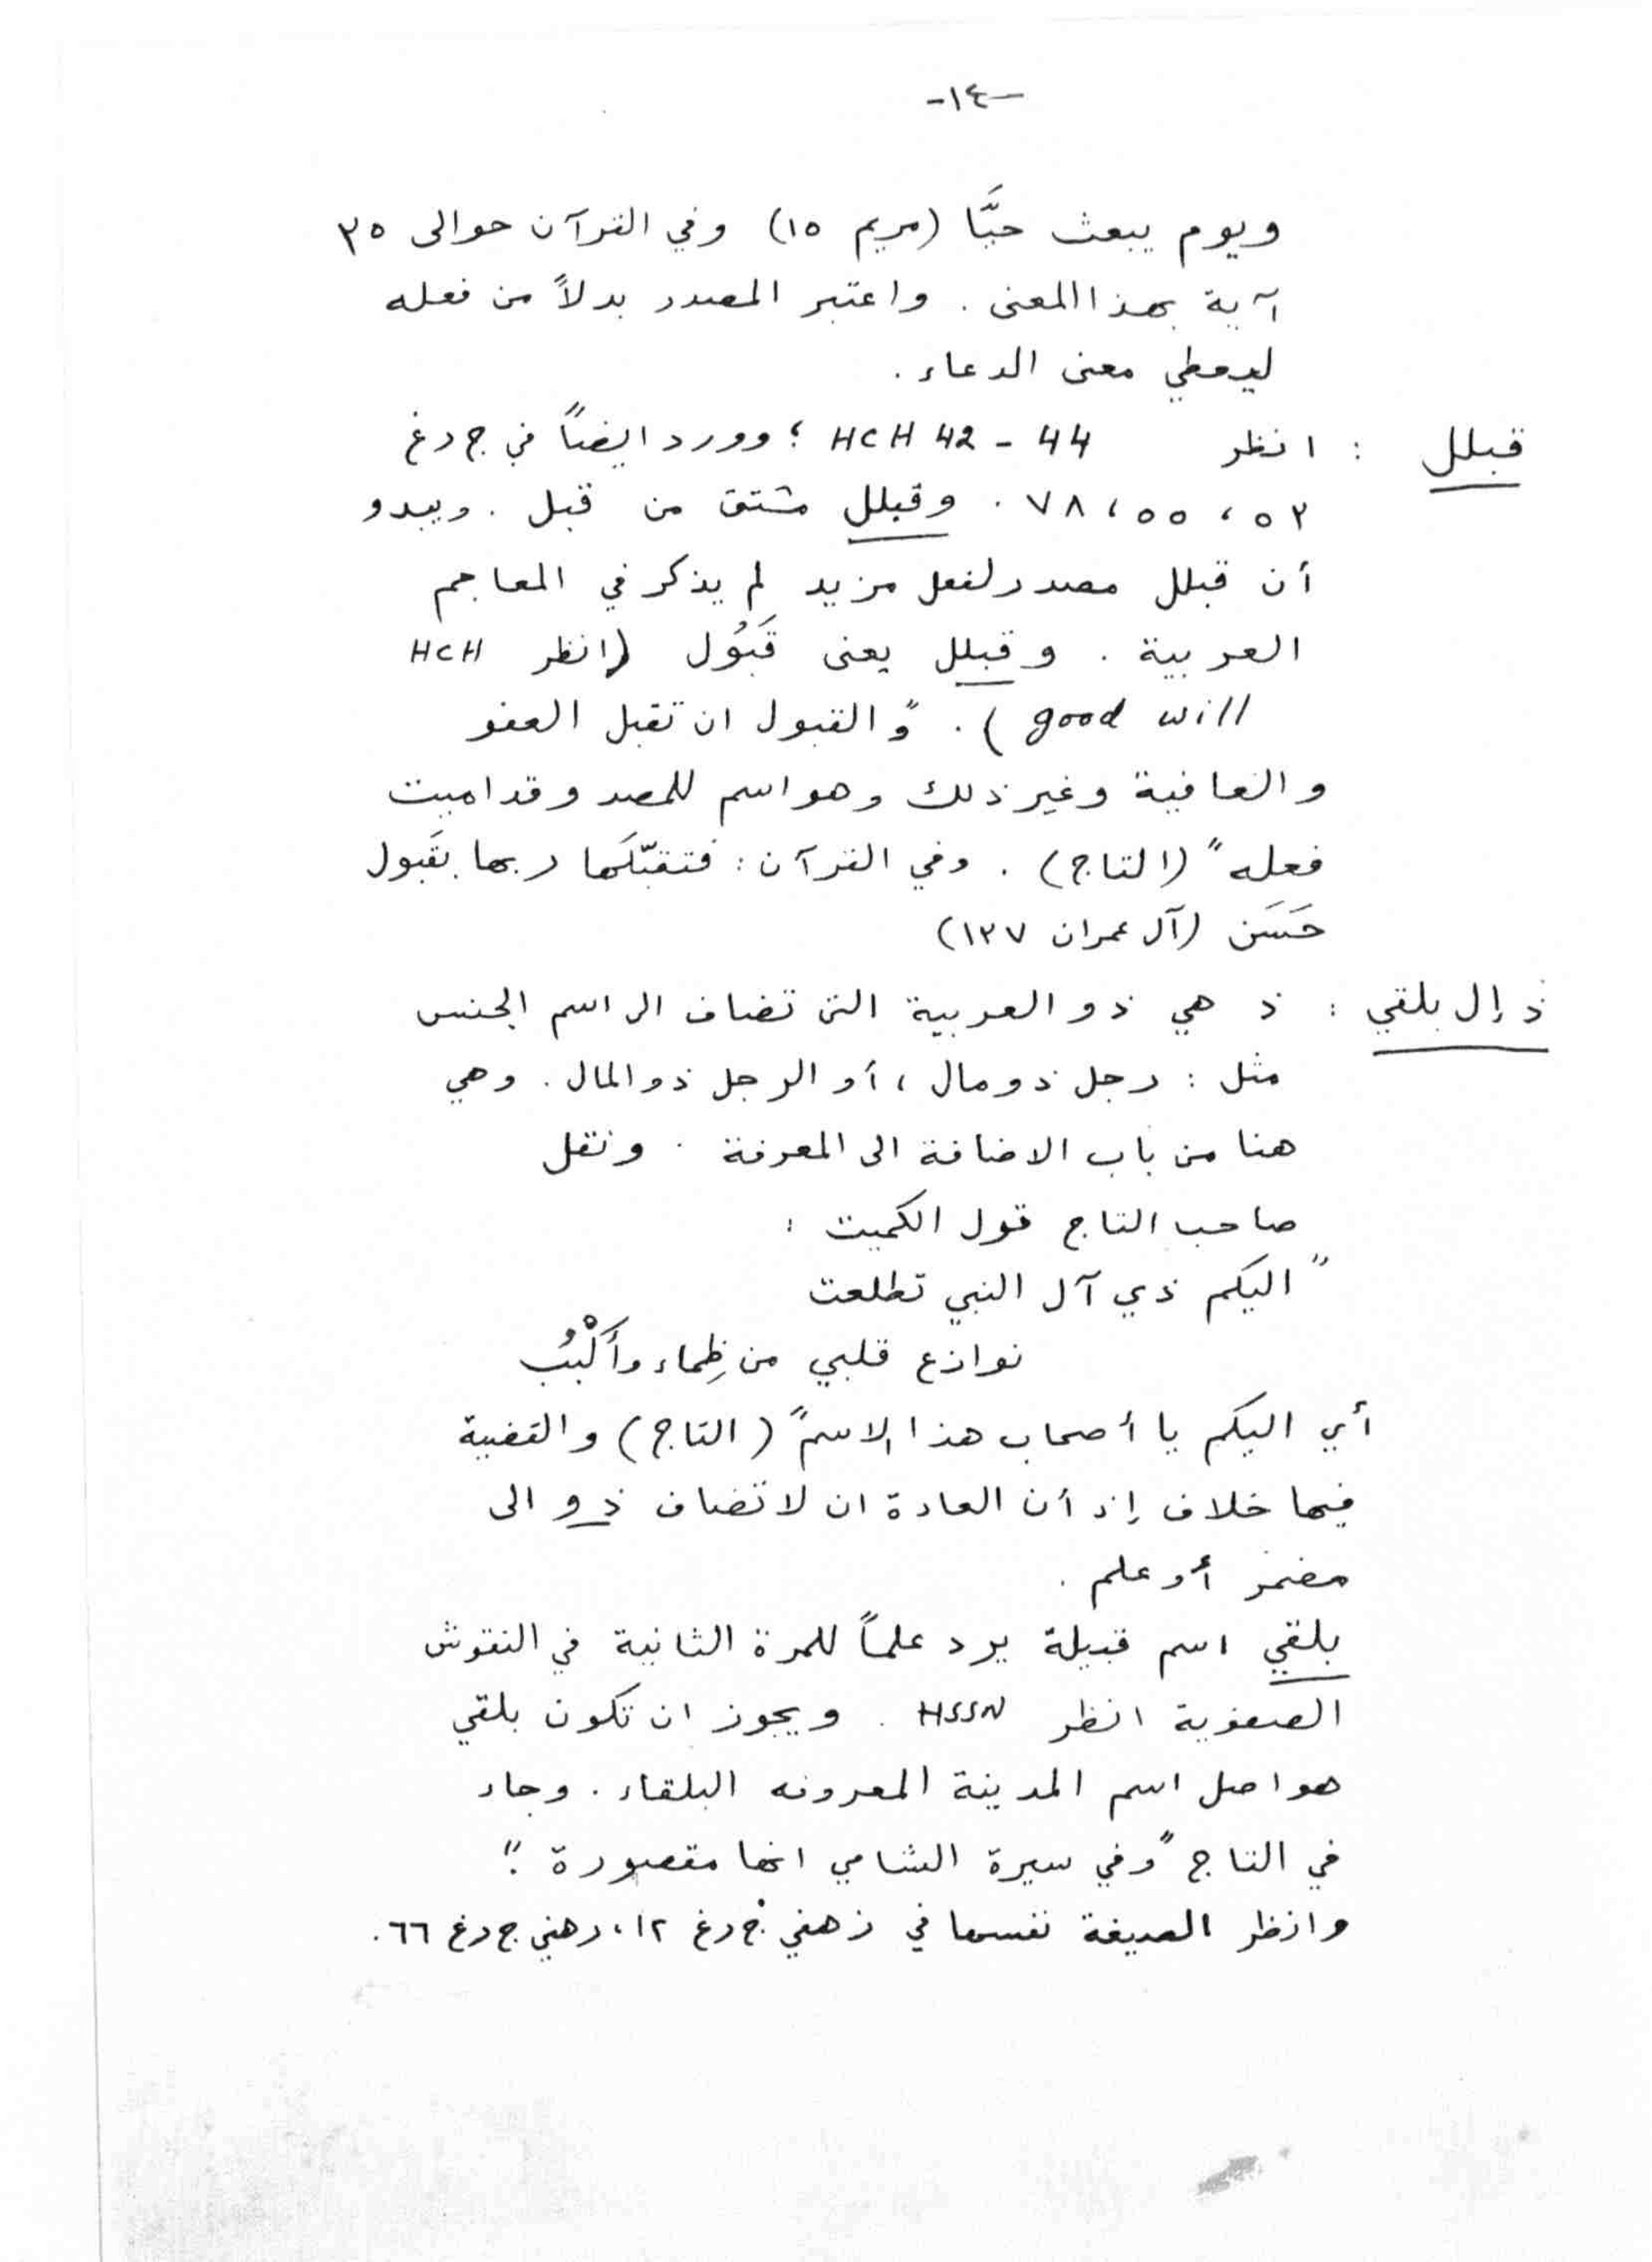 -١٤-
ويوم يبعث حيًّا (مريم ١٥) وفي القرآن حوالى ٣٥
آية بهذا المعنى . واعتبر المصدر بدلاً من فعله
ليعطي معنى الدعاء .
قبلل : انظر HCH 42 - 44 ؛ وورد ايضاً في ج دغ
٥٣ ، ٥٥ ، ٧٨ . وقبلل مشتق من قبل . ويبدو
أن قبلل مصدر لفعل مزيد لم يذكر في المعاجم
العربية . وقبلل يعنى قَبُول (انظر HCH
good will ) . "والقبول ان تقبل العفو
والعافية وغير ذلك وهو اسم للمصدر وقد اميت
فعله" (التاج) . وفي القرآن : فتقبّلَها ربها بقَبول
حَسَن (آل عمران ١٣٧)
ذ إل بلقي : ذ هي ذو العربية التى تضاف الى اسم الجنس
مثل : رجل ذو مال ، أو الرجل ذو المال . وهي
هنا من باب الاضافة الى المعرفة . ونقل
صاحب التاج قول الكميت :
"اليكم ذي آل النبي تطلعت
نوازع قلبي من ظِماء وأَلْبُبُ
أي اليكم يا أصحاب هذا الاسم" (التاج) والقضية
فيها خلاف إذ أن العادة ان لا تضاف ذو الى
مضمر أو علم .
بلقي اسم قبيلة يرد علماً للمرة الثانية في النقوش
الصفوية انظر HSSN . ويجوز ان تكون بلقي
هو اصل اسم المدينة المعروفه البلقاء . وجاء
في التاج "وفي سيرة الشامي انها مقصورة ."
وانظر الصيغة نفسها في ذ هفي ج دغ ١٢ ، دهني ج دغ ٦٦ .